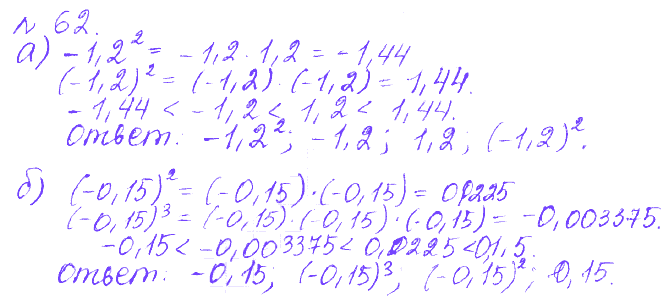 № 62.
а) -1,2² = -1,2 · 1,2 = -1,44
(-1,2)² = (-1,2) · (-1,2) = 1,44.
-1,44 < -1,2 < 1,2 < 1,44.
Ответ: -1,2²; -1,2; 1,2; (-1,2)².
б) (-0,15)² = (-0,15) · (-0,15) = 0,0225
(-0,15)³ = (-0,15) · (-0,15) · (-0,15) = -0,003375.
-0,15 < -0,003375 < 0,0225 < 0,1,5.
Ответ: -0,15; (-0,15)³; (-0,15)²; 0,15.